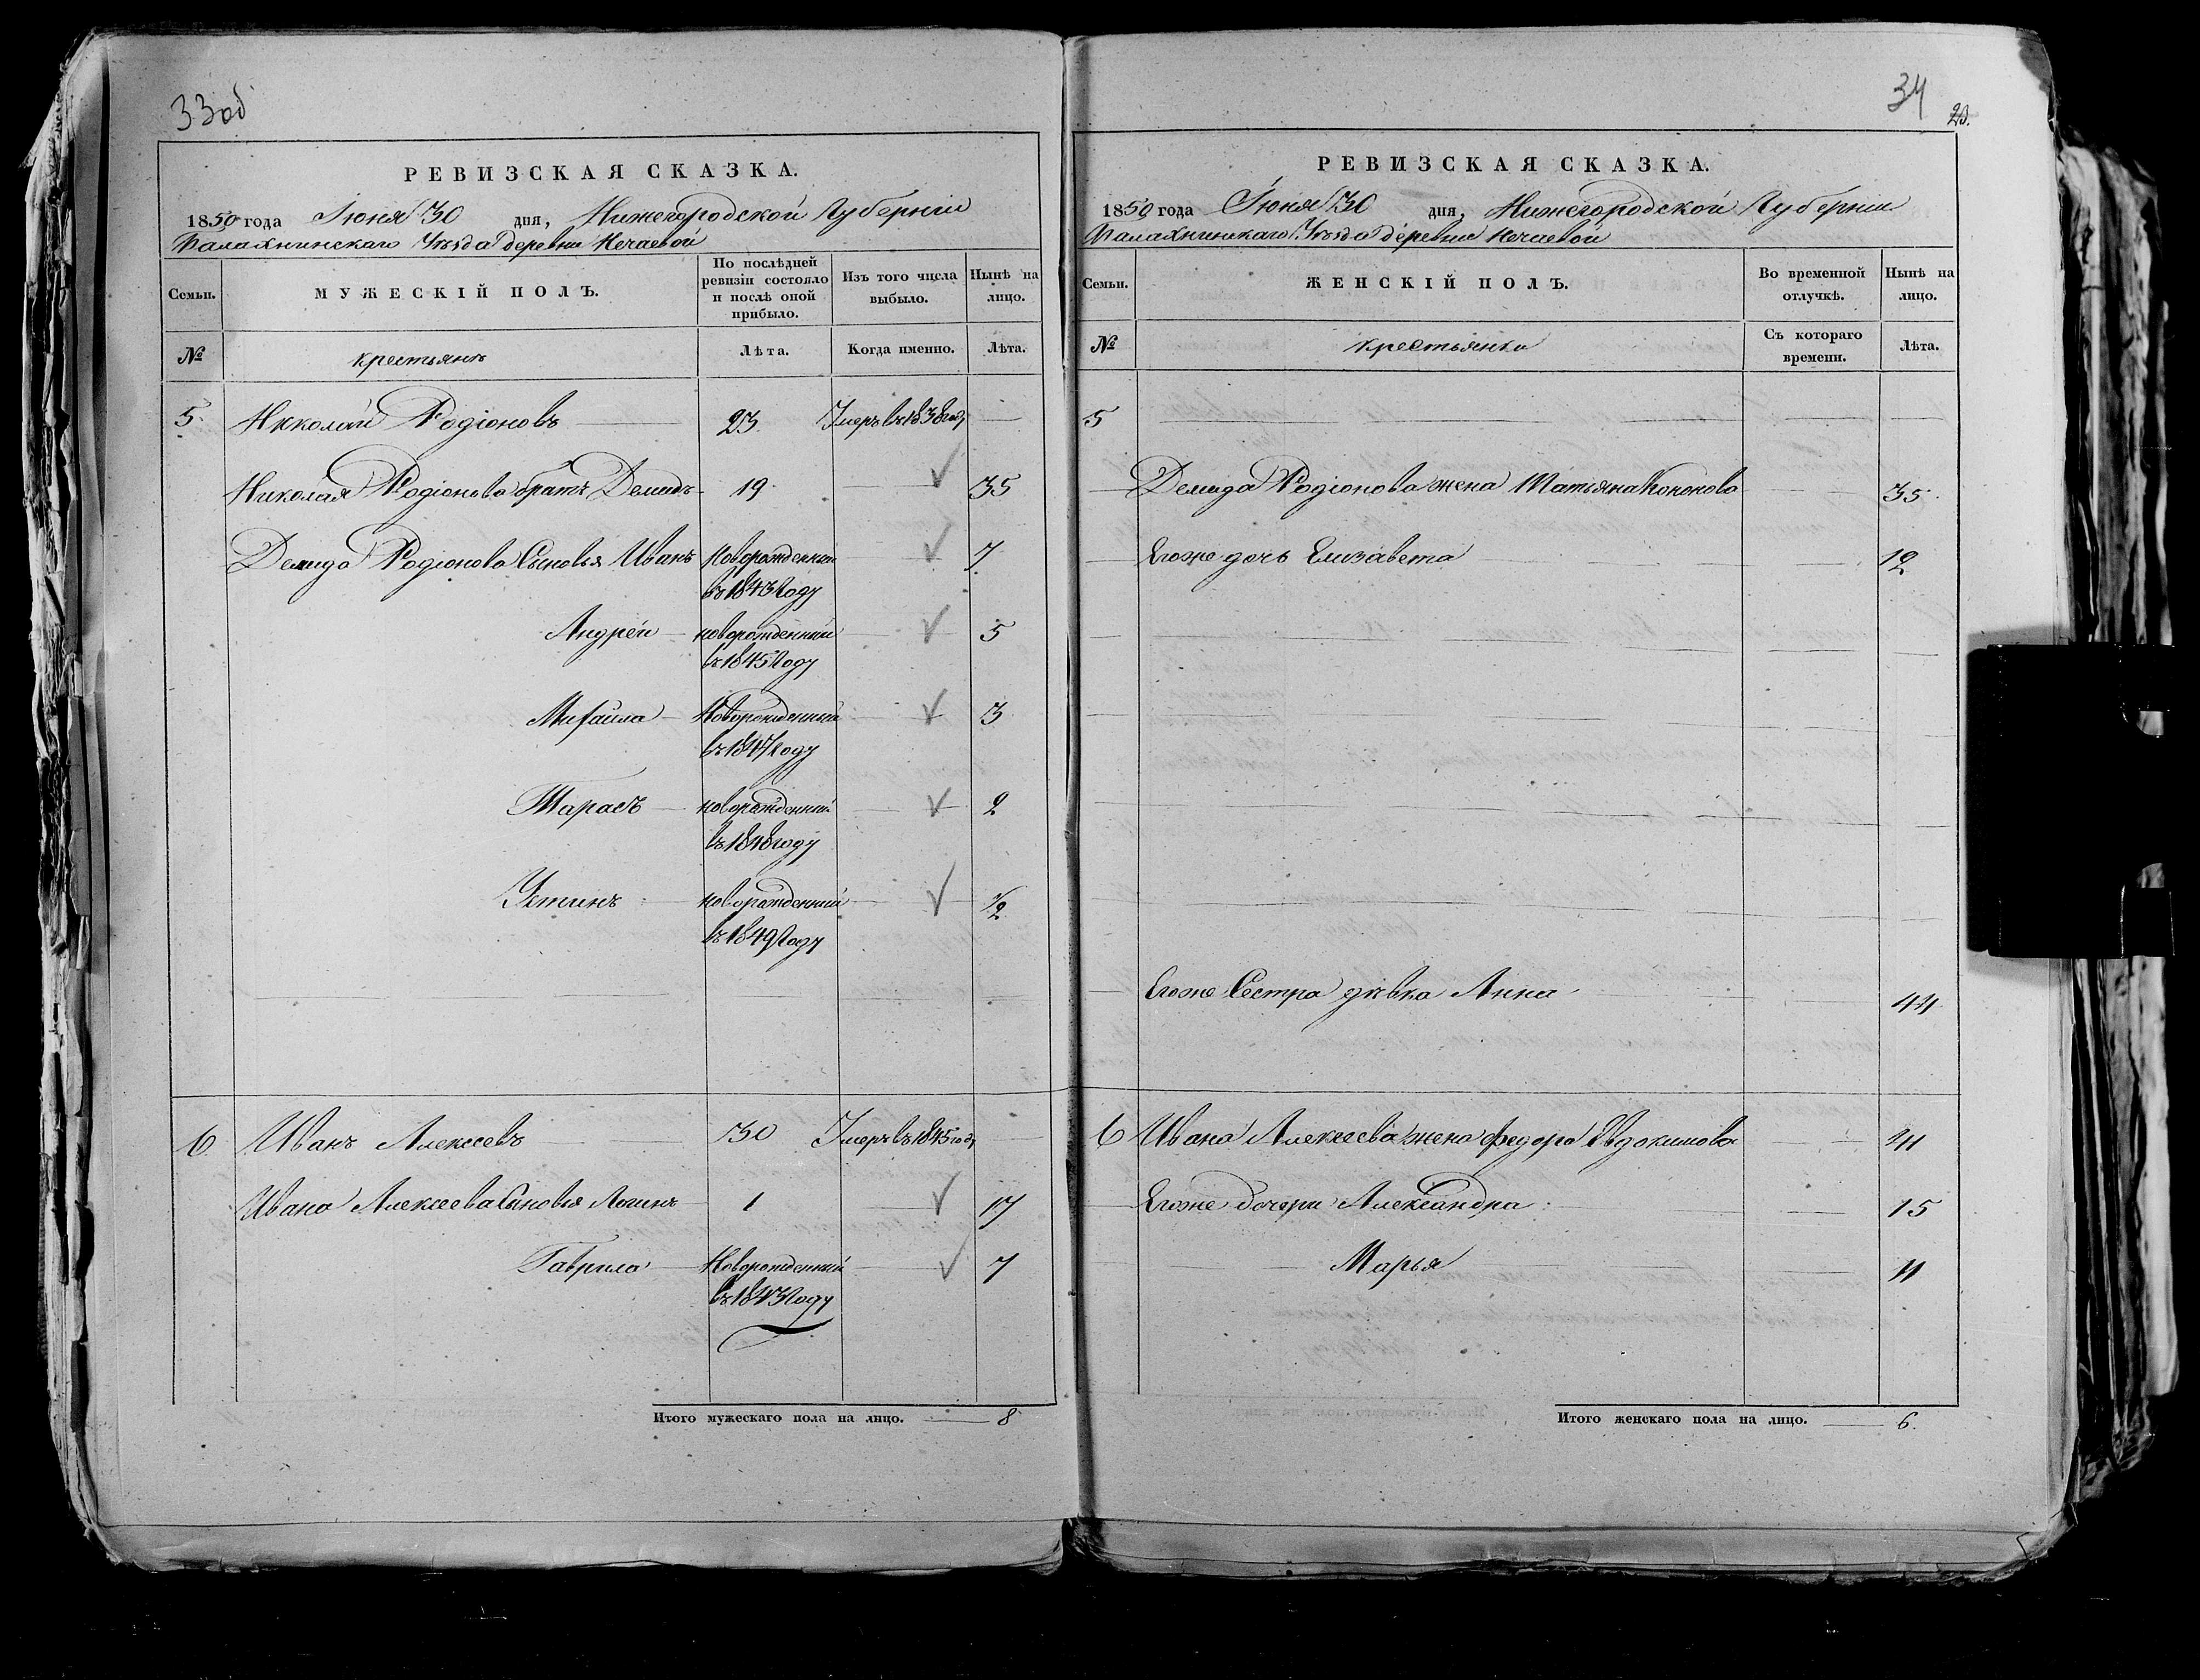 33об
РЕВИЗСКАЯ СКАЗКА.
1850 года Іюня 30 дня, Нижегородской Губерніи
Балахнинскаго Уѣзда деревни Нечаевой
Семьи. МУЖЕСКІЙ ПОЛЪ. По послѣдней ревизіи состояло и послѣ оной прибыло. Изъ того числа выбыло. Нынѣ на лицо.
№ крестьянъ Лѣта. Когда именно. Лѣта.
5. Николай Родіоновъ 23 Умеръ въ 1838 году
Николая Родіонова братъ Демидъ 19 35
Демида Родіонова Сыновья Иванъ Новорожденный 7
въ 1843 Году
Андрей новорожденный 5
въ 1845 Году
Михаила Новорожденный 3
въ 1847 году
Тарасъ новорожденный 2
въ 1848 году
Устинъ новорожденный 1/2
въ 1849 Году
6 Иванъ Алексеевъ 30 Умеръ въ 1845 году
Ивана Алексеева Сыновья Логинъ 1 17
Гаврила Новорожденный 7
въ 1843 Году
Итого мужескаго пола на лицо. 8
34
РЕВИЗСКАЯ СКАЗКА.
1850 года Іюня 30 дня, Нижегородской Губерніи
Балахнинскаго Уѣзда деревни Нечаевой
Семьи. ЖЕНСКІЙ ПОЛЪ. Во временной отлучкѣ. Нынѣ на лицо.
№ крестьянки Съ котораго времени. Лѣта.
5
Демида Родіонова жена Татьяна Кононова 35
Егоже дочь Елизавета 12
Егоже Сестра дѣвка Анна 44
6 Ивана Алексеева жена Федора Евдокимова 41
Егоже дочери Александра 15
Марья 11
Итого женскаго пола на лицо. 6.